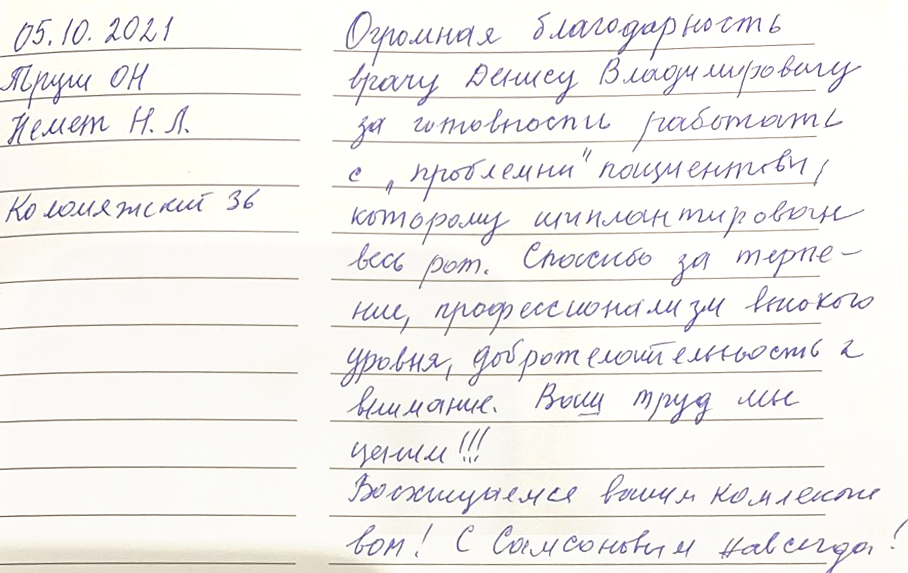 05.10.2021
Труш ОН
Немет Н. Л.
Коломяжский 36
Огромная благодарность
врачу Денису Владимировичу
за готовность работать
с „проблемны" пациентовы,
которому имплантировали
весь рот. Спасибо за терпе-
ние, профессионализм высокого
уровня, доброжелательность и
внимание. Ваш труд мы
ценим!!!
Восхищаемся вашим коллекти
вом! С Самсоновым навсегда!